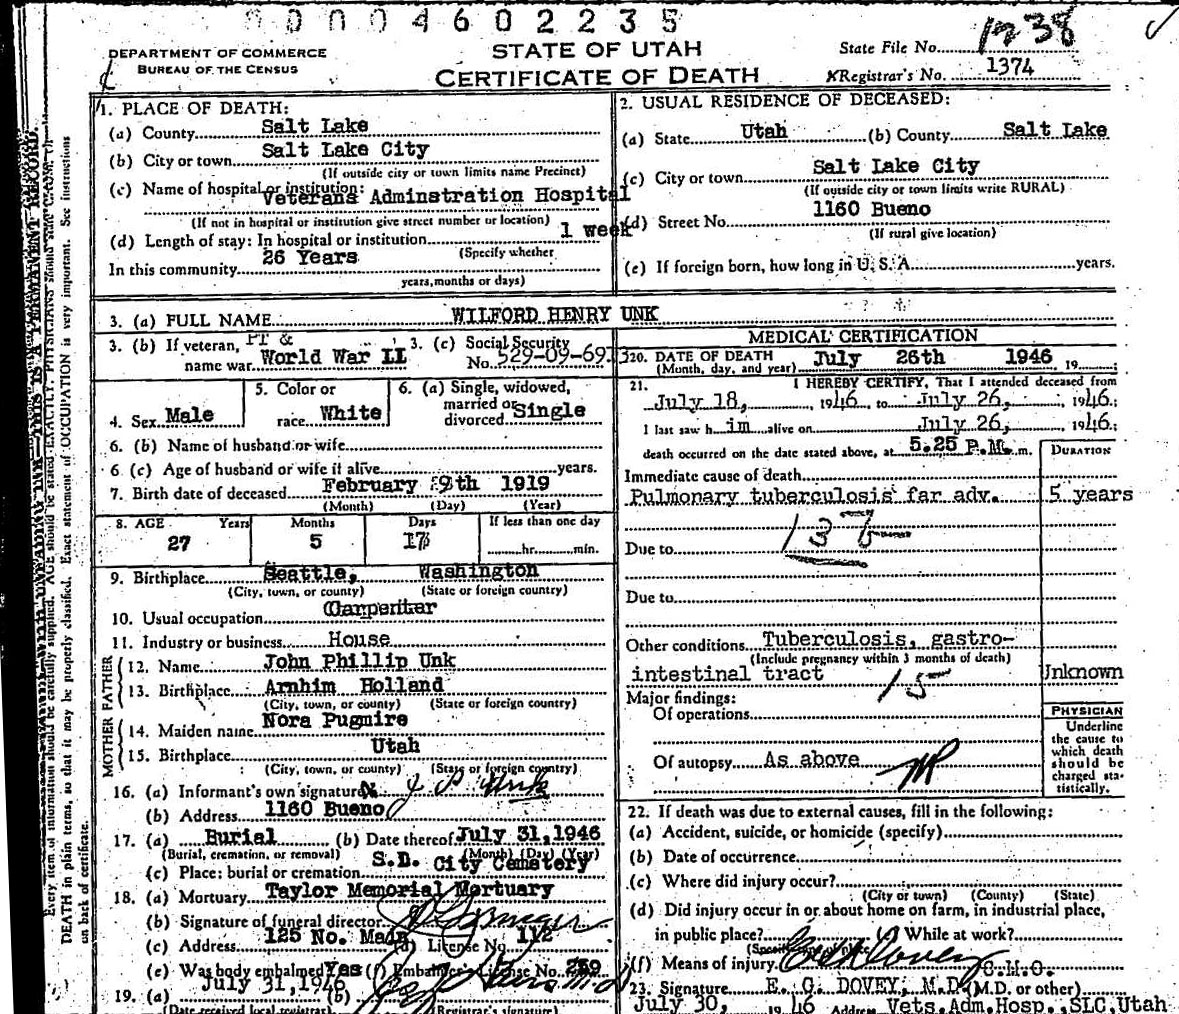 0004602235
DEPARTMENT OF COMMERCE
BUREAU OF THE CENSUS
STATE OF UTAH
CERTIFICATE OF DEATH
State File No.
Registrar's No. 1374
1. PLACE OF DEATH:
(a) County Salt Lake
(b) City or town Salt Lake City
(If outside city or town limits name Precinct)
(c) Name of hospital or institution: Veterans Adminstration Hospital
(If not in hospital or institution give street number or location)
(d) Length of stay: In hospital or institution 1 week
26 Years (Specify whether
In this community
years, months or days)
2. USUAL RESIDENCE OF DECEASED:
(a) State Utah (b) County Salt Lake
(c) City or town Salt Lake City
(If outside city or town limits write RURAL)
(d) Street No. 1160 Bueno
(If rural give location)
(e) If foreign born, how long in U. S. A. years.
3. (a) FULL NAME WILFORD HENRY UNK
3. (b) If veteran, PT &
name war World War II
3. (c) Social Security
No. 529-09-69
4. Sex Male
5. Color or
race White
6. (a) Single, widowed,
married or
divorced Single
6. (b) Name of husband or wife
6 (c) Age of husband or wife if alive years.
7. Birth date of deceased February 9th 1919
(Month) (Day) (Year)
8. AGE Years Months Days If less than one day
27 5 17 hr. min.
9. Birthplace Seattle, Washington
(City, town, or county) (State or foreign country)
10. Usual occupation Carpenter
11. Industry or business House
FATHER
12. Name John Phillip Unk
13. Birthplace Arnhim Holland
(City, town, or county) (State or foreign country)
MOTHER
14. Maiden name Nora Pugmire
15. Birthplace Utah
(City, town, or county) (State or foreign country)
16. (a) Informant's own signature J P Unk
(b) Address 1160 Bueno
17. (a) Burial (b) Date thereof July 31, 1946
(Burial, cremation, or removal) (Month) (Day) (Year)
(c) Place: burial or cremation S.L. City Cemetery
18. (a) Mortuary Taylor Memorial Mortuary
(b) Signature of funeral director
(c) Address 125 No. Main (d) License No. 112
(e) Was body embalmed Yes (f) Embalmer's License No. 259
19. (a) July 31, 1946 (b)
(Date received local registrar) (Registrar's signature)
MEDICAL CERTIFICATION
20. DATE OF DEATH July 26th 1946 19
(Month, day, and year)
21. I HEREBY CERTIFY, That I attended deceased from
July 18, 1946 to July 26, 1946;
I last saw him alive on July 26, 1946;
death occurred on the date stated above, at 5.25 P.M. m.
DURATION
Immediate cause of death
Pulmonary tuberculosis far adv. 5 years
Due to
Due to
Other conditions Tuberculosis, gastro-
(Include pregnancy within 3 months of death)
intestinal tract Unknown
15
Major findings:
Of operations
Of autopsy As above
PHYSICIAN
Underline
the cause to
which death
should be
charged sta-
tistically.
22. If death was due to external causes, fill in the following:
(a) Accident, suicide, or homicide (specify)
(b) Date of occurrence
(c) Where did injury occur?
(City or town) (County) (State)
(d) Did injury occur in or about home on farm, in industrial place,
in public place? (e) While at work?
(Specify type of place)
(f) Means of injury
C.M.O.
23. Signature E. G. DOVEY, M.D. (M.D. or other)
July 30, 1946 Address Vets. Adm. Hosp., SLC, Utah